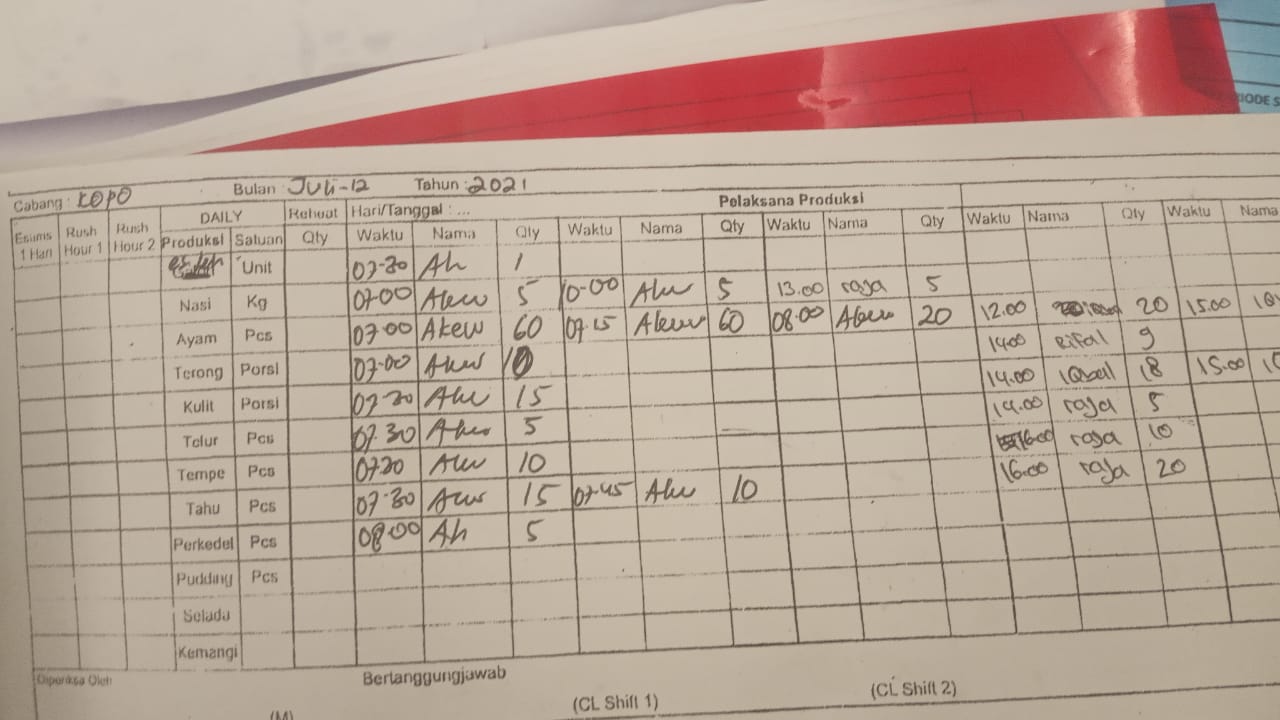 IODE S
Cabang : KOPO Bulan : JULI-12 Tahun : 2021
Pelaksana Produksi
Rush Hour 1 Rush Hour 2 DAILY Reheat Hari/Tanggal : ...
1 Hari Produksi Satuan Qty Waktu Nama Qty Waktu Nama Qty Waktu Nama Qty Waktu Nama Qty Waktu Nama
Unit 07-30 1
Nasi Kg 07-00 Akew 5 10-00 5 13.00 raja 5
Ayam Pcs 07-00 Akew 60 07.15 Akew 60 08.00 Akew 20 12.00 20 15.00
Terong Porsi 07-00 14.00 Rifal 9
Kulit Porsi 15 14.00 IQbal 18 15.00
Telur Pcs 07.30 5 14.00 raja 5
Tempe Pcs 10 16.00 raja 10
Tahu Pcs 07-30 15 07-45 10 16.00 raja 20
Perkedel Pcs 08.00 5
Pudding Pcs
Selada
Kemangi
Diperiksa Oleh Bertanggungjawab
(M) (CL Shift 1) (CL Shift 2)